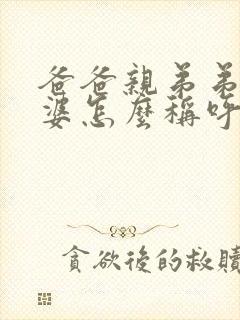 爸爸親弟弟
婆怎麼稱呼
貪欲後的救贖